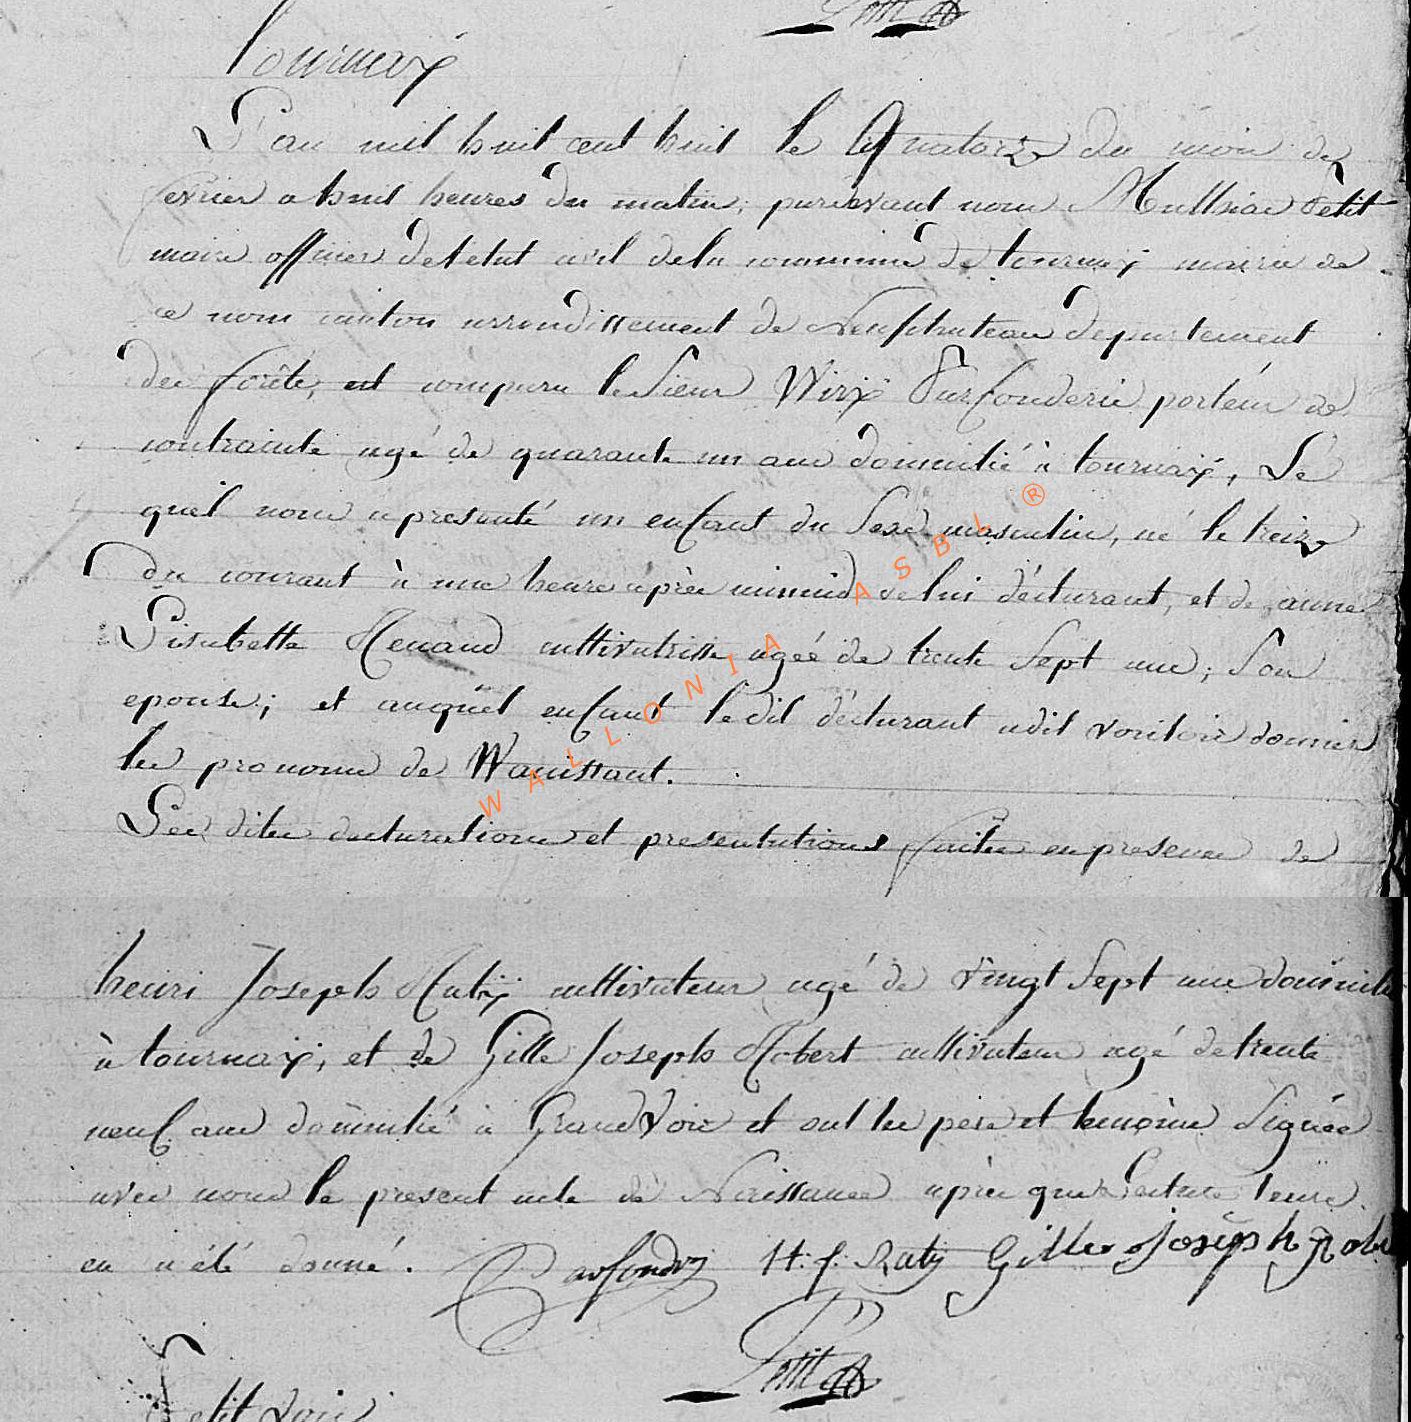 Petit
Tournaÿ
L'an mil huit cent huit le Quatorze du mois de
fevrier a huit heures du matin; pardevant nous Petit
maire officier deletat civil dela commune de tournaÿ mairie de
ce nom canton arrondissement de Neufchateau departement
des forêts, est comparu le Sieur Parfonderie porteur de
contrainte agé de quarante un ans domicilié à tournaÿ, Le
quel nous a presenté un enfant du Sexe masculin, né le treize
du courant à une heure après minuid de lui déclarant, et de anne
Lisabette Renaud cultivatrisse agée de trente Sept ans; Son
epouse; et auquel enfant le dit déclarant a dit vouloir donner
les pronoms de
Les dites declarations et presentations faites en presence de
henri Joseph Ratÿ cultivateur agé de vingt Sept ans domicilie
à tournaÿ; et de Gille Joseph Robert cultivateur agé de trente
neuf ans domicilié à Grand Voir et ont les pere et temoins Signée
avec nous le present acte de Naissance après que Lecture leurs
en a été donné. Parfondry H: J: Raty Gilles Joseph Rober
Petit
Petit Voir
WALLONIA ASBL ®